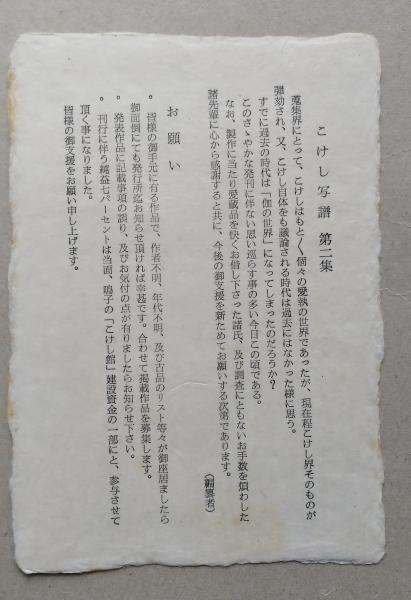 こけし写譜 第二集
蒐集界にとって、こけしはもと〱個々の愛執の世界であったが、現在程こけし界そのものが
弾劾され、又、こけし自体をも議論される時代は過去にはなかった様に思う。
すでに過去の時代は「伽の世界」になってしまったのだろうか？
このさゝやかな発刊に伴ない思い巡らす事の多い今日この頃である。
なお、製作に当たり愛蔵品を快くお借し下さった諸氏、及び調査にともないお手数を煩わした
諸先輩に心から感謝すると共に、今後の御支援を新ためてお願いする次第であります。
（編纂者）
お願い
• 皆様の御手元に有る作品で、作者不明、年代不明、及び古品のリスト等々が御座居ましたら
御面倒にても発行所迄お知らせ頂ければ幸甚です。合わせて掲載作品を募集します。
• 発表作品に記載事項の誤り、及びお気付の点が有りましたらお知らせ下さい。
• 刊行に伴う純益七パーセントは当面、鳴子の「こけし館」建設資金の一部にと、参与させて
頂く事になりました。
皆様の御支援をお願い申し上げます。